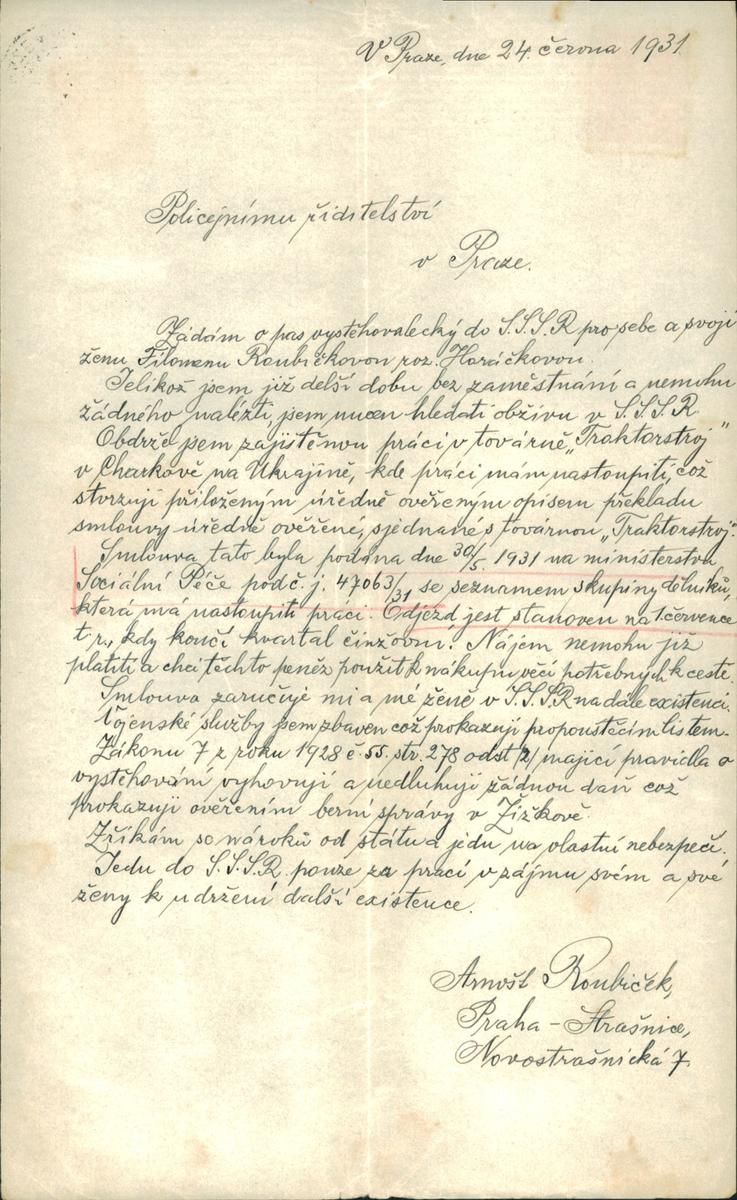 V Praze, dne 24. června 1931.
Policejnímu řiditelství
v Praze.
Žádám o pas vystěhovalecký do S.S.S.R pro sebe a svoji
ženu Filomenu Roubíčkovou roz. Horáčkovou.
Jelikož jsem již delší dobu bez zaměstnání a nemohu
žádného nalézti, jsem nucen hledati obživu v S.S.S.R.
Obdržel jsem zajištěnou práci v továrně „Traktorstroj"
v Charkově na Ukrajině, kde práci mám nastoupiti, což
stvrzuji přiloženým úředně ověřeným opisem překladu
smlouvy úředně ověřené, sjednané s továrnou „Traktorstroj".
Smlouva tato byla podána dne 30/5. 1931 na ministerstvu
Sociální Péče pod č. j. 47063/31 se seznamem skupiny dělníků,
která má nastoupiti práci. Odjezd jest stanoven na 1. července
t. r., kdy končí kvartal činžovní. Nájem nemohu již
platiti a chci těchto peněz použít k nákupu věcí potřebných k cestě.
Smlouva zaručuje mi a mé ženě v S.S.S.R nadále existenci.
Vojenské služby jsem zbaven což prokazuji propouštěcím listem.
Zákonu 7 z roku 1928 č. 55. str. 278 odst /2/ mající pravidla o
vystěhování vyhovuji a nedluhuji žádnou daň což
prokazuji ověřením berní správy v Žižkově.
Zříkám se nároků od státu a jedu na vlastní nebezpečí.
Jedu do S.S.S.R. pouze za prací v zájmu svém a své
ženy k udržení další existence.
Arnošt Roubíček,
Praha – Strašnice,
Novostrašnická 7.